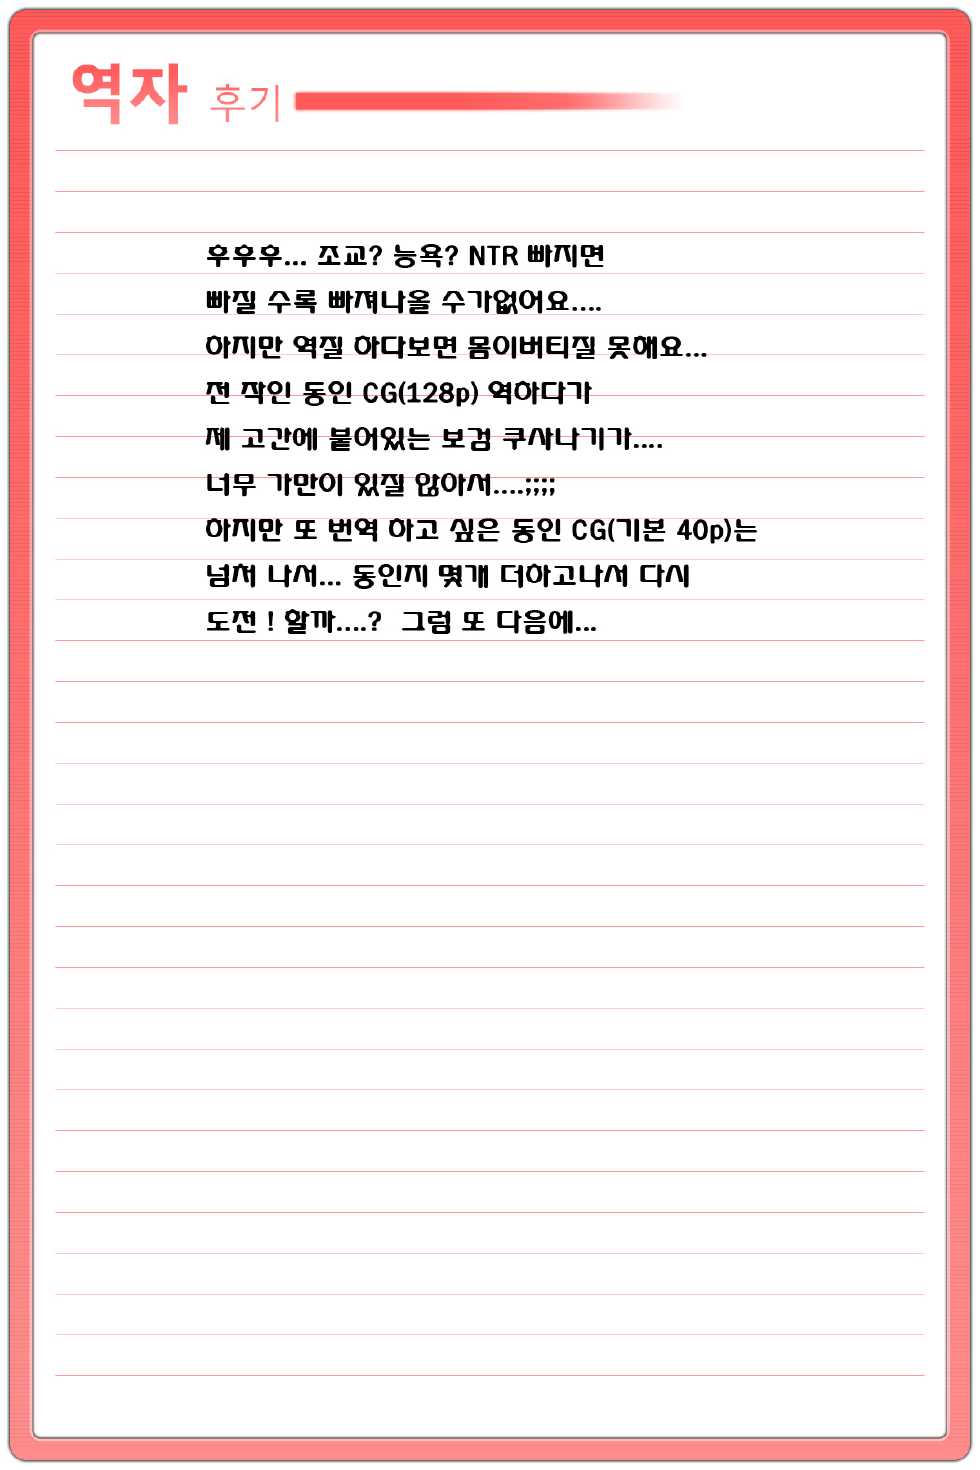 역자 후기
후후후... 조교? 능욕? NTR 빠지면
빠질 수록 빠져나올 수가없어요....
하지만 역질 하다보면 몸이버티질 못해요...
전 작인 동인 CG(128p) 역하다가
제 고간에 붙어있는 보검 쿠사나기가....
너무 가만이 있질 않아서....;;;;
하지만 또 번역 하고 싶은 동인 CG(기본 40p)는
넘쳐 나서... 동인지 몇개 더하고나서 다시
도전 ! 할까....? 그럼 또 다음에...